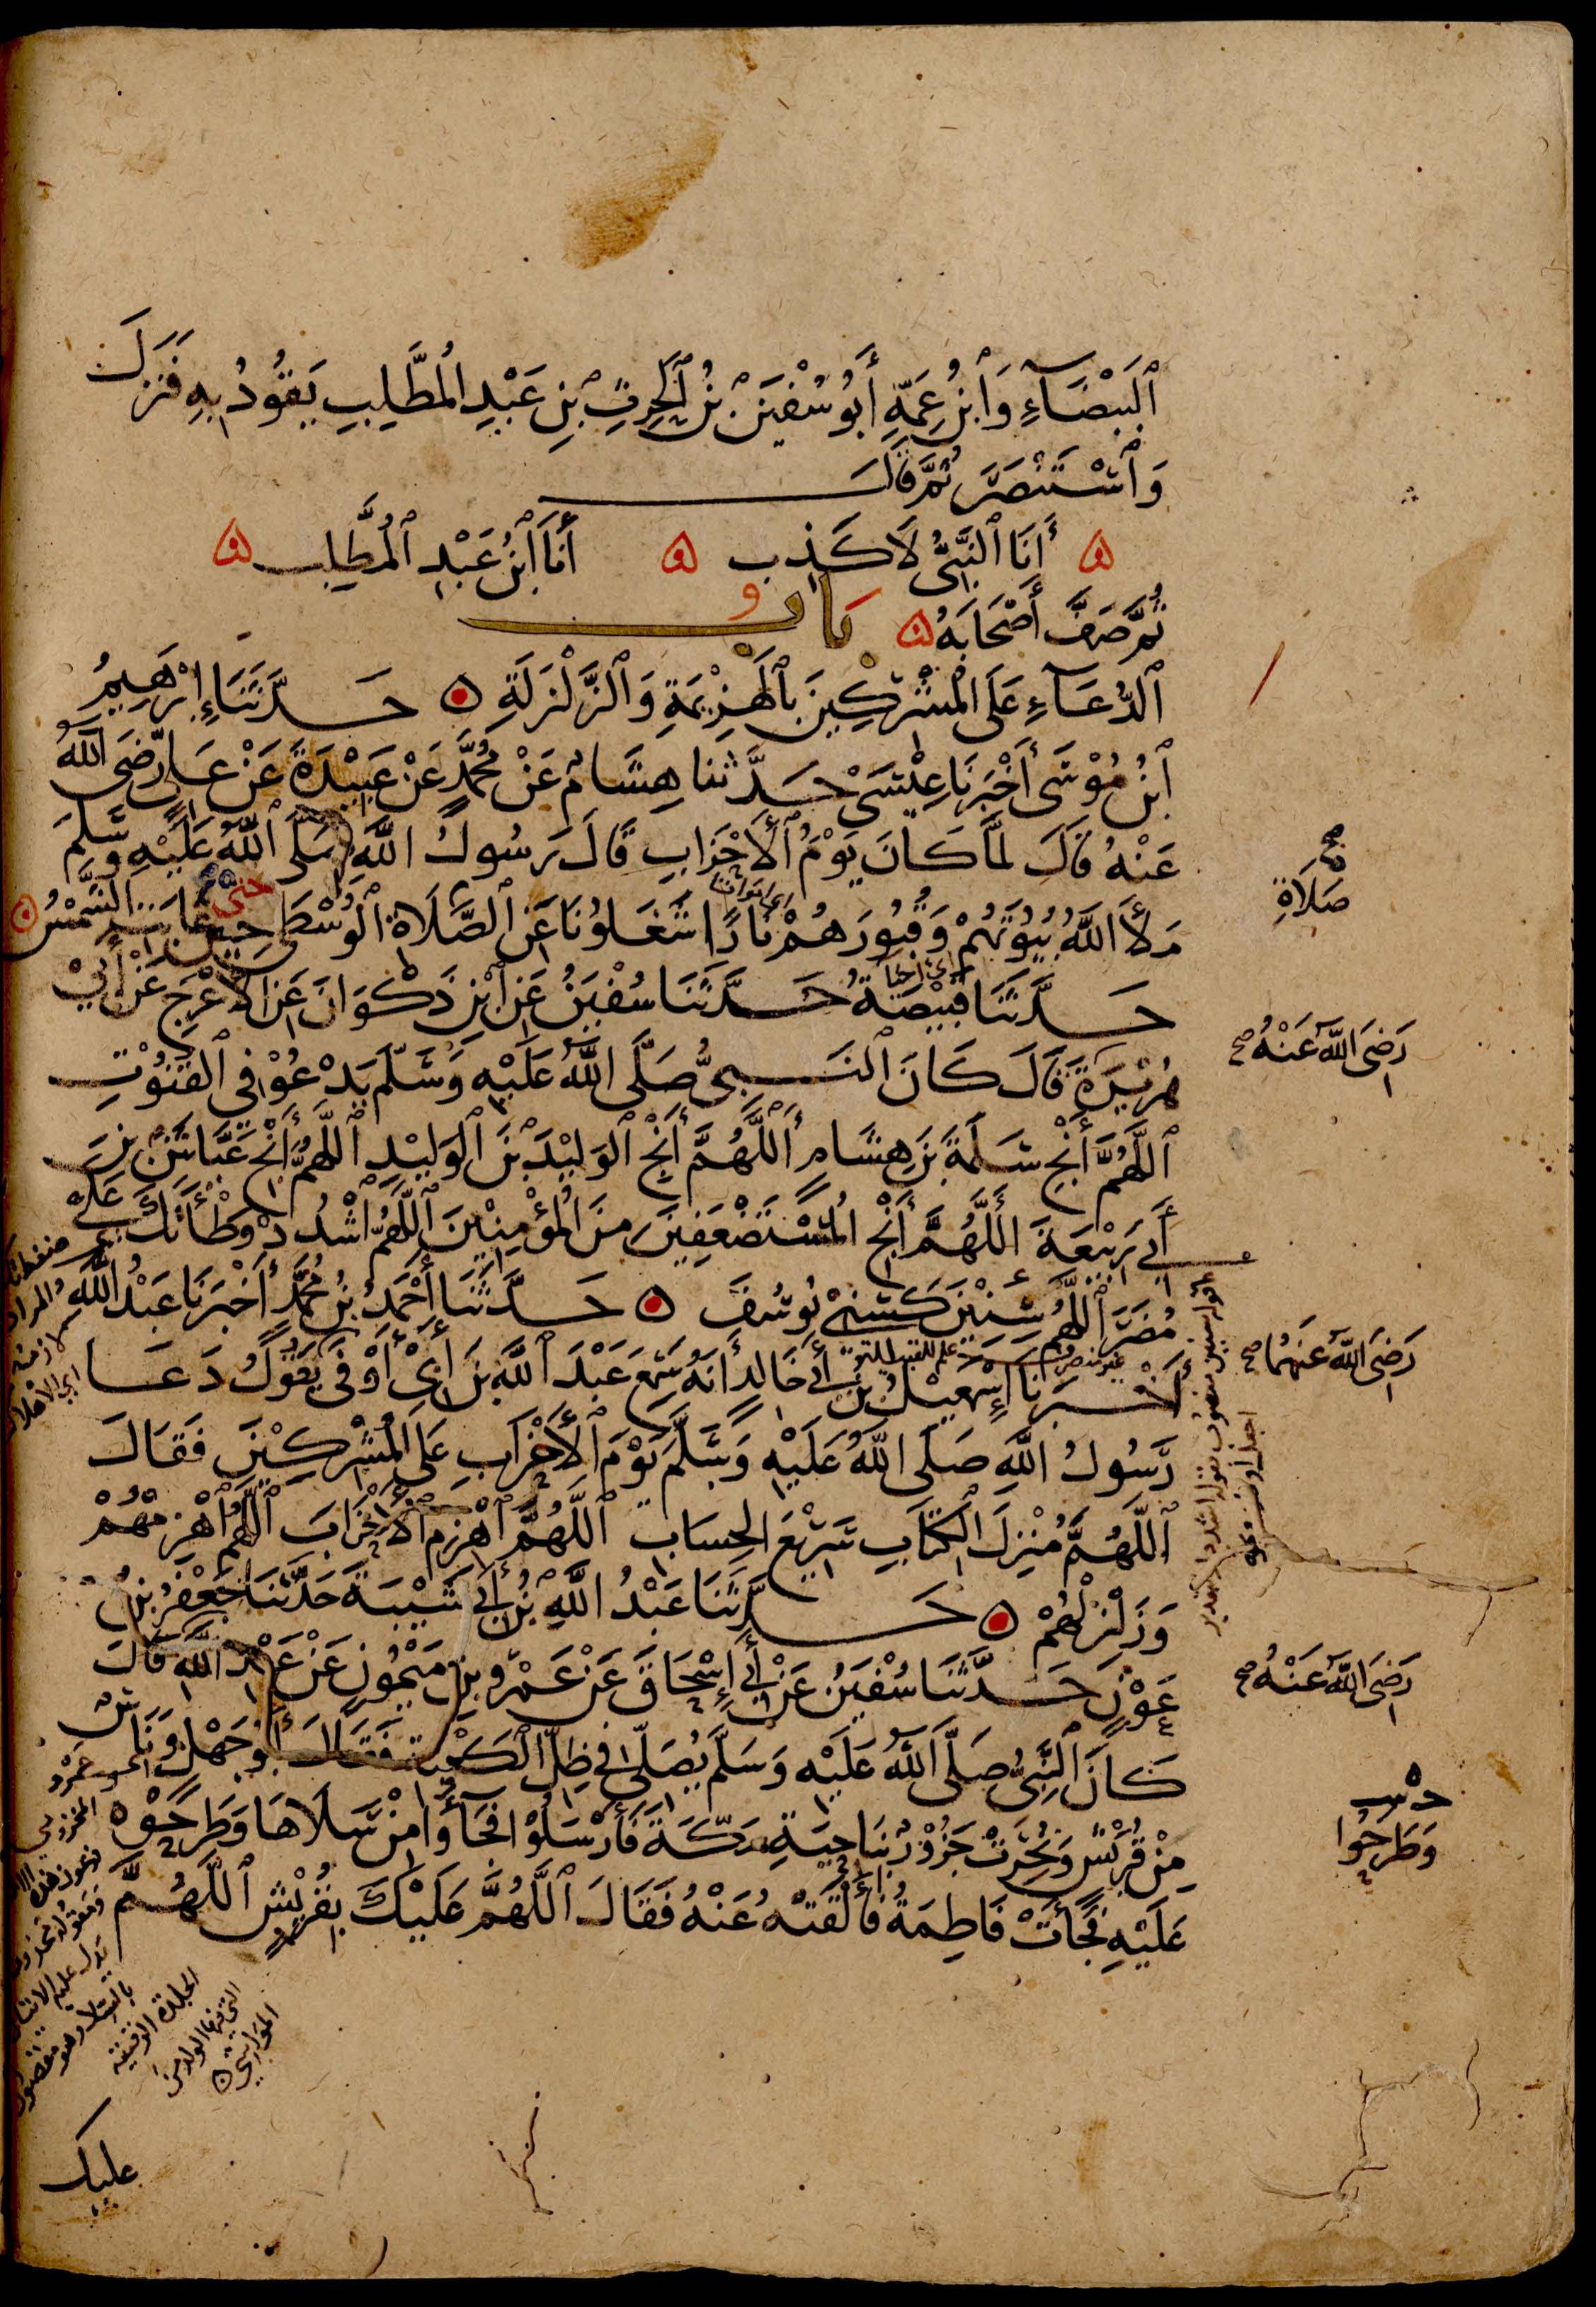 ٱلْبَيْضَآءِ وَٱبْنُ عَمِّهِ أَبُو سُفْيَنَ بْنُ ٱلْحَرِثِ بْنِ عَبْدِ الْمُطَّلِبِ يَقُوْدُ بِهِ فَنَزَلَ
وَٱسْتَنْصَرَ ثُمَّ قَالَ
أَنَا ٱلنَّبِىُّ لَا كَذِب أَنَا ٱبْنُ عَبْدِ ٱلْمُطَّلِب
ثُمَّ صَفَّ أَصْحَابَهُ بَابُ
ٱلدُّعَآءِ عَلَى الْمُشْرِكِينَ بِٱلْهَزِيْمَةِ وَٱلزَّلْزَلَةِ حَدَّثَنَا إِبْرَهِيمُ
ٱبْنُ مُوْسَى أَخْبَرَنَا عِيْسَى حَدَّثنا هِشَامٌ عَنْ مُحَمَّدٍ عَنْ عَبِيْدَةَ عَنْ عَلِىٍّ رَضِىَ اللَّهُ
عَنْهُ قَالَ لَمَّا كَانَ يَوْمُ ٱلْأَحْزَابِ قَالَ رَسُولُ اللَّهِ صَلَّى ٱللَّهُ عَلَيْهِ وَسَلَّمَ
مَلَأَ اللَّهُ بُيُوْتَهُمْ وَقُبُورَهُمْ نَارًا شَغَلُوْنَا عَنِ ٱلصَّلَاةِ الْوُسْطَى حِيْنَ غَابَتِ الشَّمْسُ
حتى
صَلَاةِ
حَدَّثَنَا قَبِيْصَةُ حَدَّثَنَا سُفْيَنُ عَنِ ٱبْنِ ذَكْوَانَ عَنِ الْأَعْرَجِ عَنْ أَبِيْ
رَضِىَ اللَّهُ عَنْهُ صح
هُرَيْرَةَ قَالَ كَانَ ٱلنَّبِىُّ صَلَّى اللَّهُ عَلَيْهِ وَسَلَّمَ يَدْعُوْ فِي ٱلْقُنُوْتِ
ٱللَّهُمَّ أَنْجِ سَلَمَةَ بْنَ هِشَامٍ ٱللَّهُمَّ أَنْجِ ٱلْوَلِيْدَ بْنَ ٱلْوَلِيْدِ ٱللَّهُمَّ أَنْجِ عَيَّاشَ بْنَ
أَبِي رَبِيْعَةَ اللَّهُمَّ أَنْجِ الْمُسْتَضْعَفِيْنَ مِنَ الْمُؤْمِنِيْنَ اللَّهُمَّ ٱشْدُدْ وَطْأَتَكَ عَلَى
مُضَرَ ٱللَّهُمَّ سِنِيْنَ كَسِنِيْ يُوسُفَ حَدَّثَنَا أَحْمَدُ بْنُ مُحَمَّدٍ أَخْبَرَنَا عَبْدُ اللَّهِ
رَضِىَ اللَّهُ عَنْهُمَا صح
أَخْبَرَنَا إِسْمَعِيْلُ بْنُ أَبِي خَالِدٍ أَنَّهُ سَمِعَ عَبْدَ ٱللَّهِ بْنَ أَبِيْ أَوْفَى يَقُوْلُ دَعَا
رَسُولُ اللَّهِ صَلَّى اللَّهُ عَلَيْهِ وَسَلَّمَ يَوْمَ ٱلْأَحْزَابِ عَلَى الْمُشْرِكِيْنَ فَقَالَ
ٱللَّهُمَّ مُنْزِلَ الْكِتَابِ سَرِيْعَ الْحِسَابِ ٱللَّهُمَّ ٱهْزِمِ ٱلْأَحْزَابَ ٱللَّهُمَّ ٱهْزِمْهُمْ
وَزَلْزِلْهُمْ حَدَّثَنَا عَبْدُ اللَّهِ بْنُ أَبِي شَيْبَةَ حَدَّثَنَا جَعْفَرُ بْنُ
رَضِىَ اللَّهُ عَنْهُ صح
عَوْنٍ حَدَّثَنَا سُفْيَنُ عَنْ أَبِي إِسْحَاقَ عَنْ عَمْرِو بْنِ مَيْمُونٍ عَنْ عَبْدِ اللَّهِ قَالَ
كَانَ ٱلنَّبِىُّ صَلَّى اللَّهُ عَلَيْهِ وَسَلَّمَ يُصَلِّي فِي ظِلِّ ٱلْكَعْبَةِ فَقَالَ أَبُوْ جَهْلٍ وَنَاسٌ
مِنْ قُرَيْشٍ وَنُحِرَتْ جَزُوْرٌ بِنَاحِيَةِ مَكَّةَ فَأَرْسَلُوْا فَجَآءُوا مِنْ سَلَاهَا وَطَرَحُوْهُ
وَطَرَحُوا
عَلَيْهِ فَجَآءَتْ فَاطِمَةُ فَأَلْقَتْهُ عَنْهُ فَقَالَ ٱللَّهُمَّ عَلَيْكَ بِقُرَيْشٍ ٱللَّهُمَّ
الجلدة الرقيقة
التى فيها الولد من
المواشى
عليك